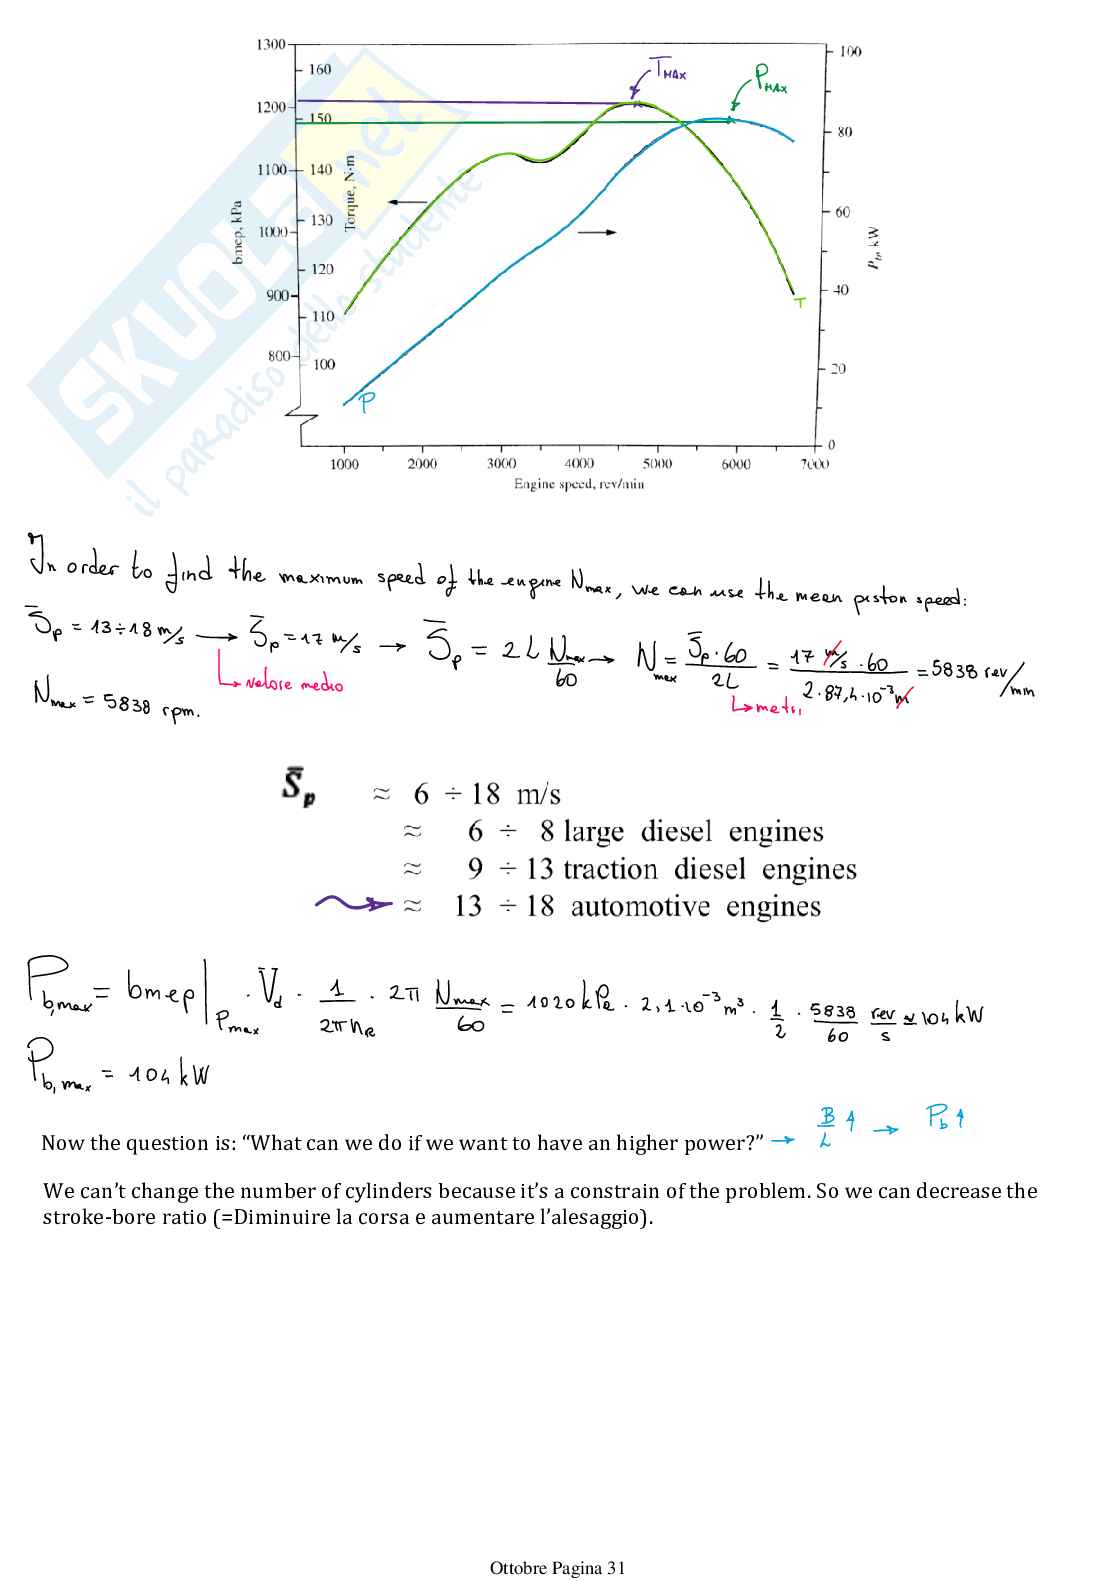 1300
160
1200
150
1100
140
1000
130
120
900
110
800
100
bmep, kPa
Torque, N·m
T MAX
P MAX
100
80
60
40
20
0
P_b, kW
T
P
1000 2000 3000 4000 5000 6000 7000
Engine speed, rev/min
SKUOLA.net
il paradiso dello studente
In order to find the maximum speed of the engine N_max, we can use the mean piston speed:
S̄_p = 13÷18 m/s → S̄_p = 17 m/s → S̄_p = 2L N_max/60 → N_max = S̄_p·60 / 2L = 17 m/s · 60 / 2·87,4·10⁻³ m = 5838 rev/min
↳ Valore medio
↳ metri
N_max = 5838 rpm.
S̄_p ≈ 6 ÷ 18 m/s
≈ 6 ÷ 8 large diesel engines
≈ 9 ÷ 13 traction diesel engines
≈ 13 ÷ 18 automotive engines
P_b,max = bmep|_Pmax · V_d · 1/2πn_R · 2π N_max/60 = 1020 kPa · 2,1·10⁻³ m³ · 1/2 · 5838/60 rev/s ≃ 104 kW
P_b,max = 104 kW
Now the question is: “What can we do if we want to have an higher power?” → B/L ↑ → P_b ↑
We can’t change the number of cylinders because it’s a constrain of the problem. So we can decrease the
stroke-bore ratio (=Diminuire la corsa e aumentare l’alesaggio).
Ottobre Pagina 31